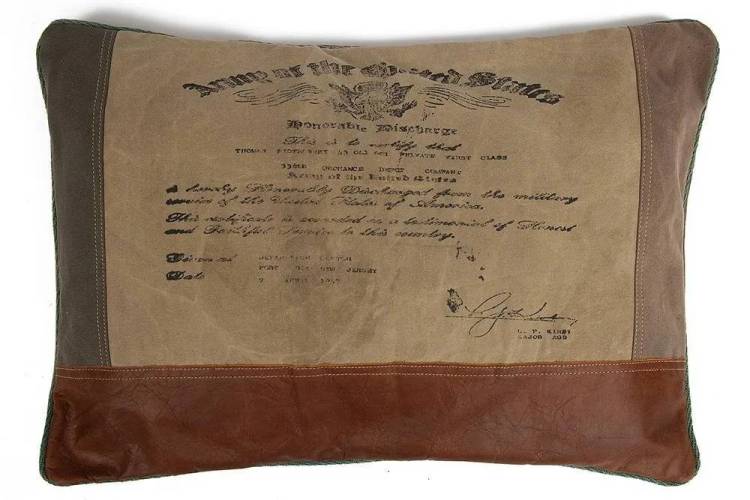 Army of the United States
Honorable Discharge
This is to certify that
THOMAS PRIVATE FIRST CLASS
ORDNANCE DEPOT COMPANY
Army of the United States
is hereby Honorably Discharged from the military
service of the United States of America.
This certificate is awarded as a testimonial of Honest
and Faithful Service to this country.
Given at SEPARATION CENTER
FORT DIX NEW JERSEY
Date 7 APRIL
KIRBY
MAJOR AGD